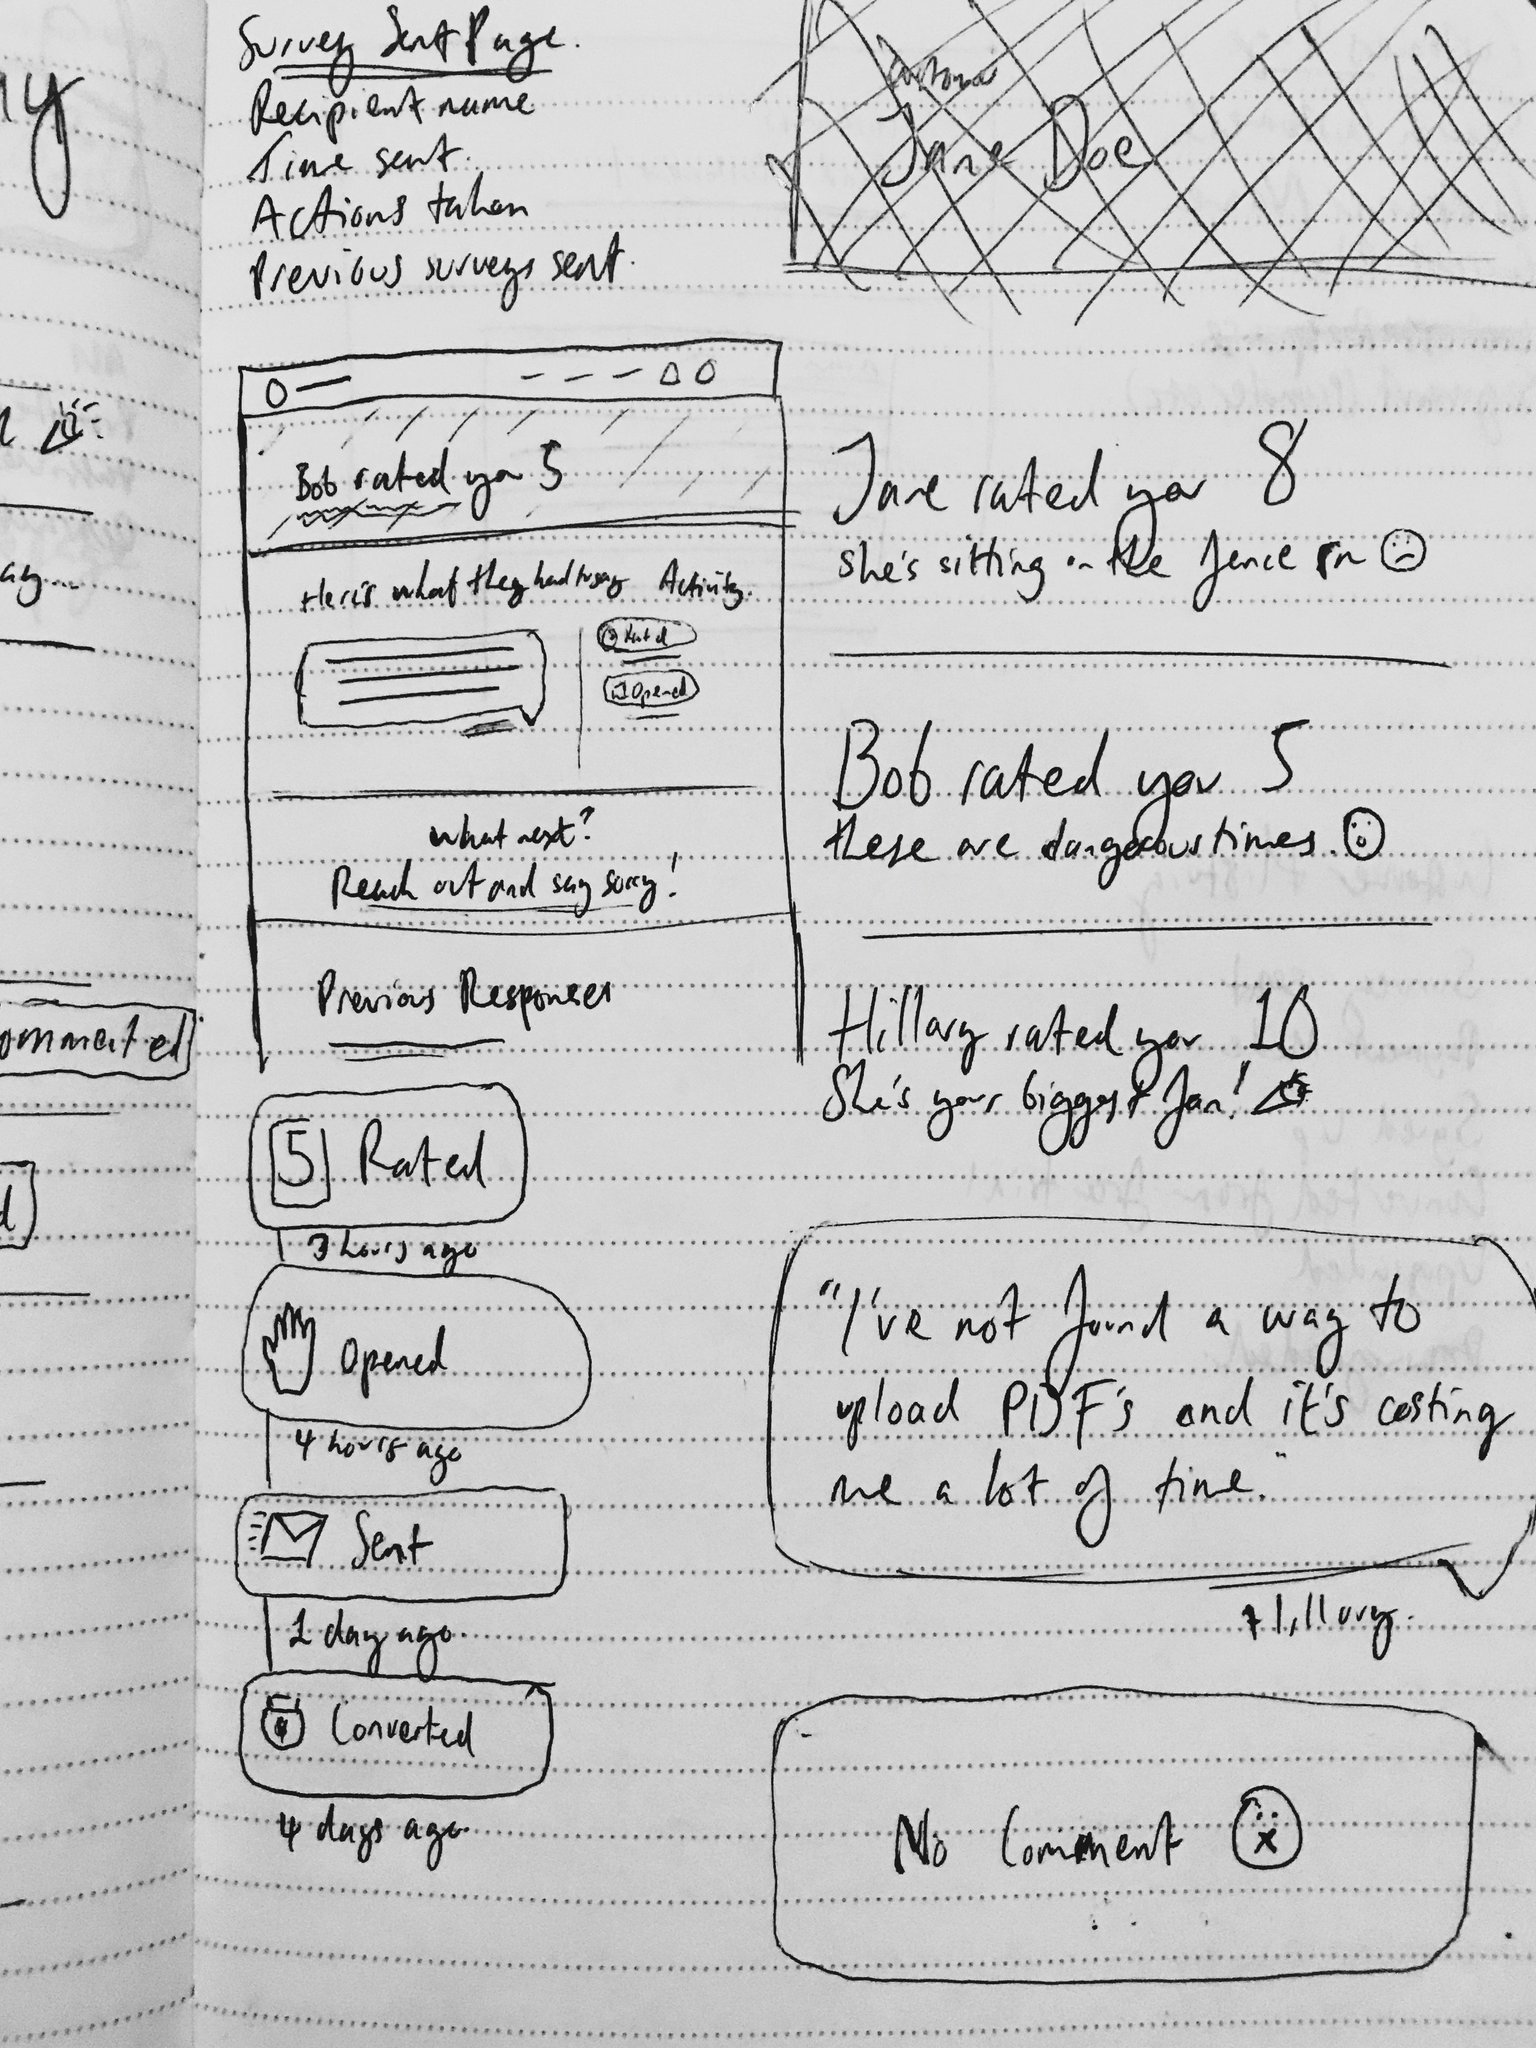 Survey Sent Page.
Recipient name
Time sent.
Actions taken
Previous surveys sent.
Customer
Jane Doe
Bob rated you 5
Here's what they had to say
Activity.
Rated
Opened
What next?
Reach out and say sorry!
Previous Responses
5 Rated
3 hours ago
Opened
4 hours ago
Sent
1 day ago
Converted
4 days ago
Jane rated you 8
she's sitting on the fence
Bob rated you 5
these are dangerous times.
Hillary rated you 10
She's your biggest fan!
"I've not found a way to
upload PDF's and it's costing
me a lot of time."
Hillary.
No Comment
ommented